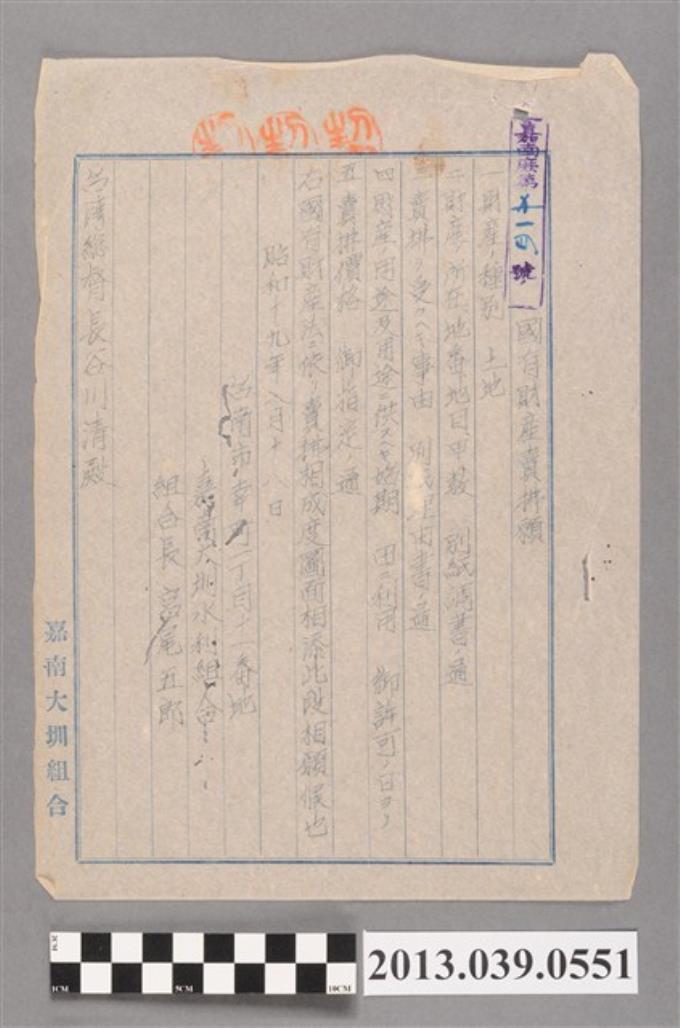 嘉南庶第 号
國有財産賣拂願
一 財産ノ種別 土地
二 財産ノ所在、地番地目甲数 別紙調書ノ通
三 賣拂ヲ受クヘキ事由 別紙理由書ノ通
四 財産ノ用途及用途ニ供スヘキ始期 田ニ利用 御許可ノ日ヨリ
五 賣拂價格 御指定ノ通
右國有財産法ニ依リ賣拂相成度圖面相添此段相願候也
昭和十九年八月十八日
台南市幸町一丁目二一番地
嘉南大圳水利組合
組合長 高尾五郎
台湾総督長谷川清殿
嘉南大圳組合
1CM 5CM 10CM
2013.039.0551